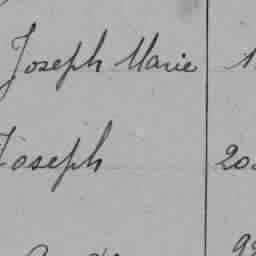 Joseph Marie 1
Joseph 20